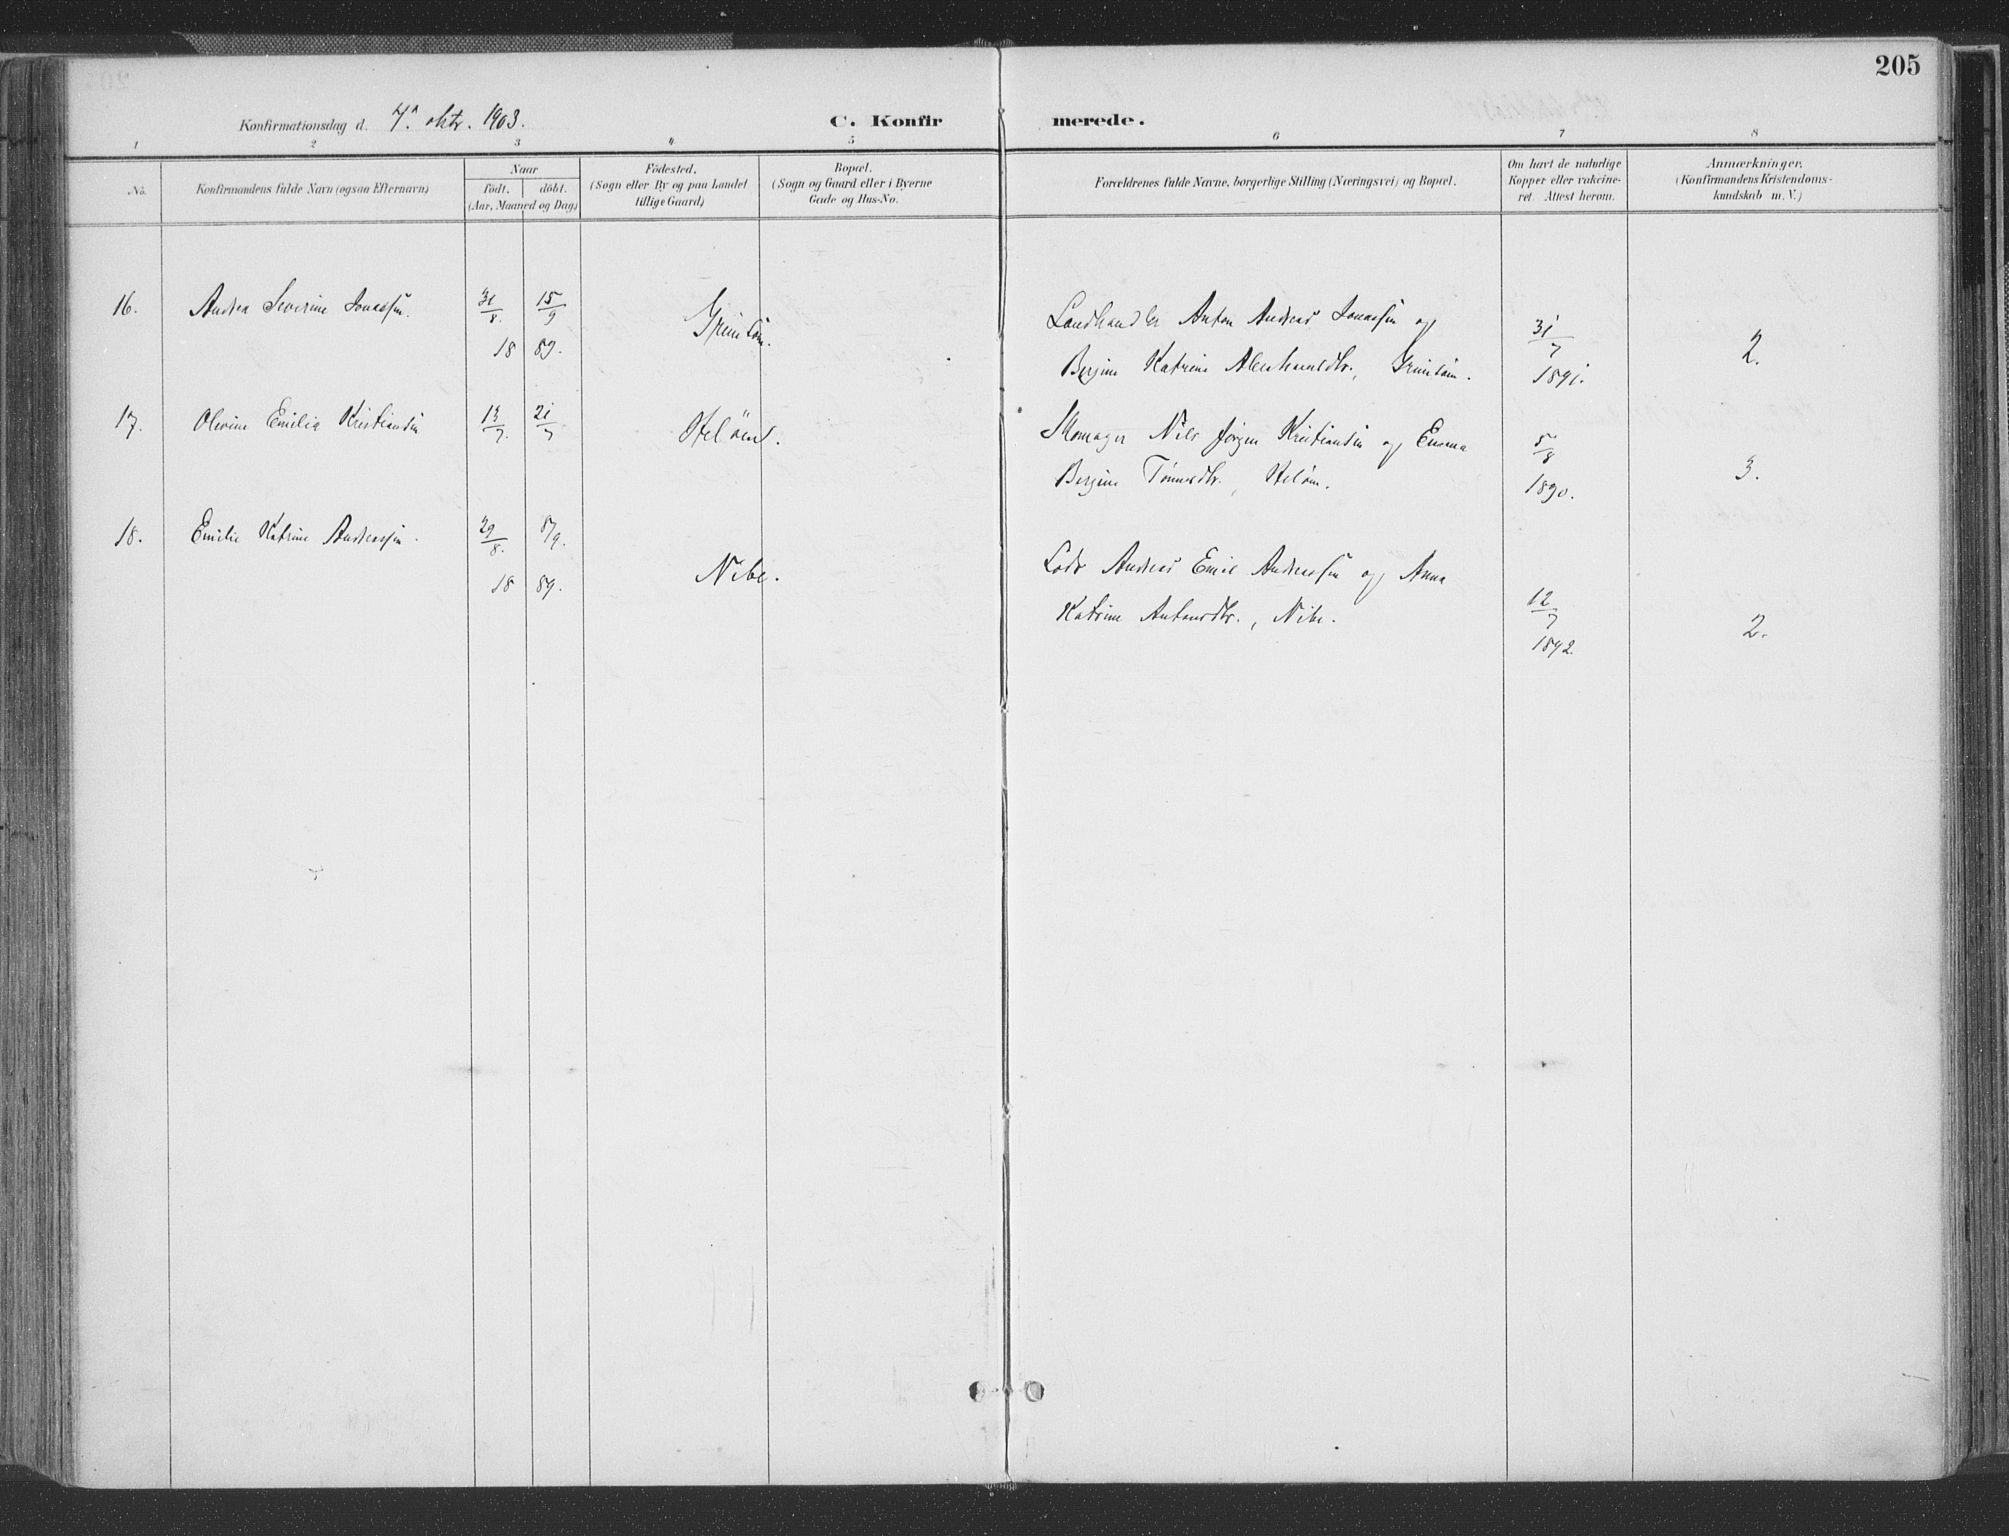 205
Konfirmationsdag d. 4. oktr. 1903.
C. Konfirmerede.
1 2 3 4 5 6 7 8
No. Konfirmandens fulde Navn (ogsaa Efternavn)
Naar
födt. döbt.
(Aar, Maaned og Dag)
Födested.
(Sogn eller By og paa Landet
tillige Gaard)
Bopæl.
(Sogn og Gaard eller i Byerne
Gade og Hus-No.
Forældrenes fulde Navne, borgerlige Stilling (Næringsvei) og Bopæl.
Om havt de naturlige
Kopper eller vakcine-
ret. Attest herom.
Anmærkninger.
(Konfirmandens Kristendoms-
kundskab m. V.)
16. Andrea Severine Jonassen. 31/8. 15/9
1889.
Landhandler Anton Andreas Jonassen og
Bergine Katrine 31/7
1891. 2.
17. Olevine Emilie Kristiansen 13/7. 21/7
Nils Jörgen Kristiansen og Emma
Bergine Tönnesdtr., 5/8
1890. 3.
18. Emilie Katrine Andreassen. 29/8. 8/9.
1889. Nibe.
Lods Andreas Emil Andreassen og Anna
Katrine Antonsdtr., Nibe. 12/7
1892. 2.